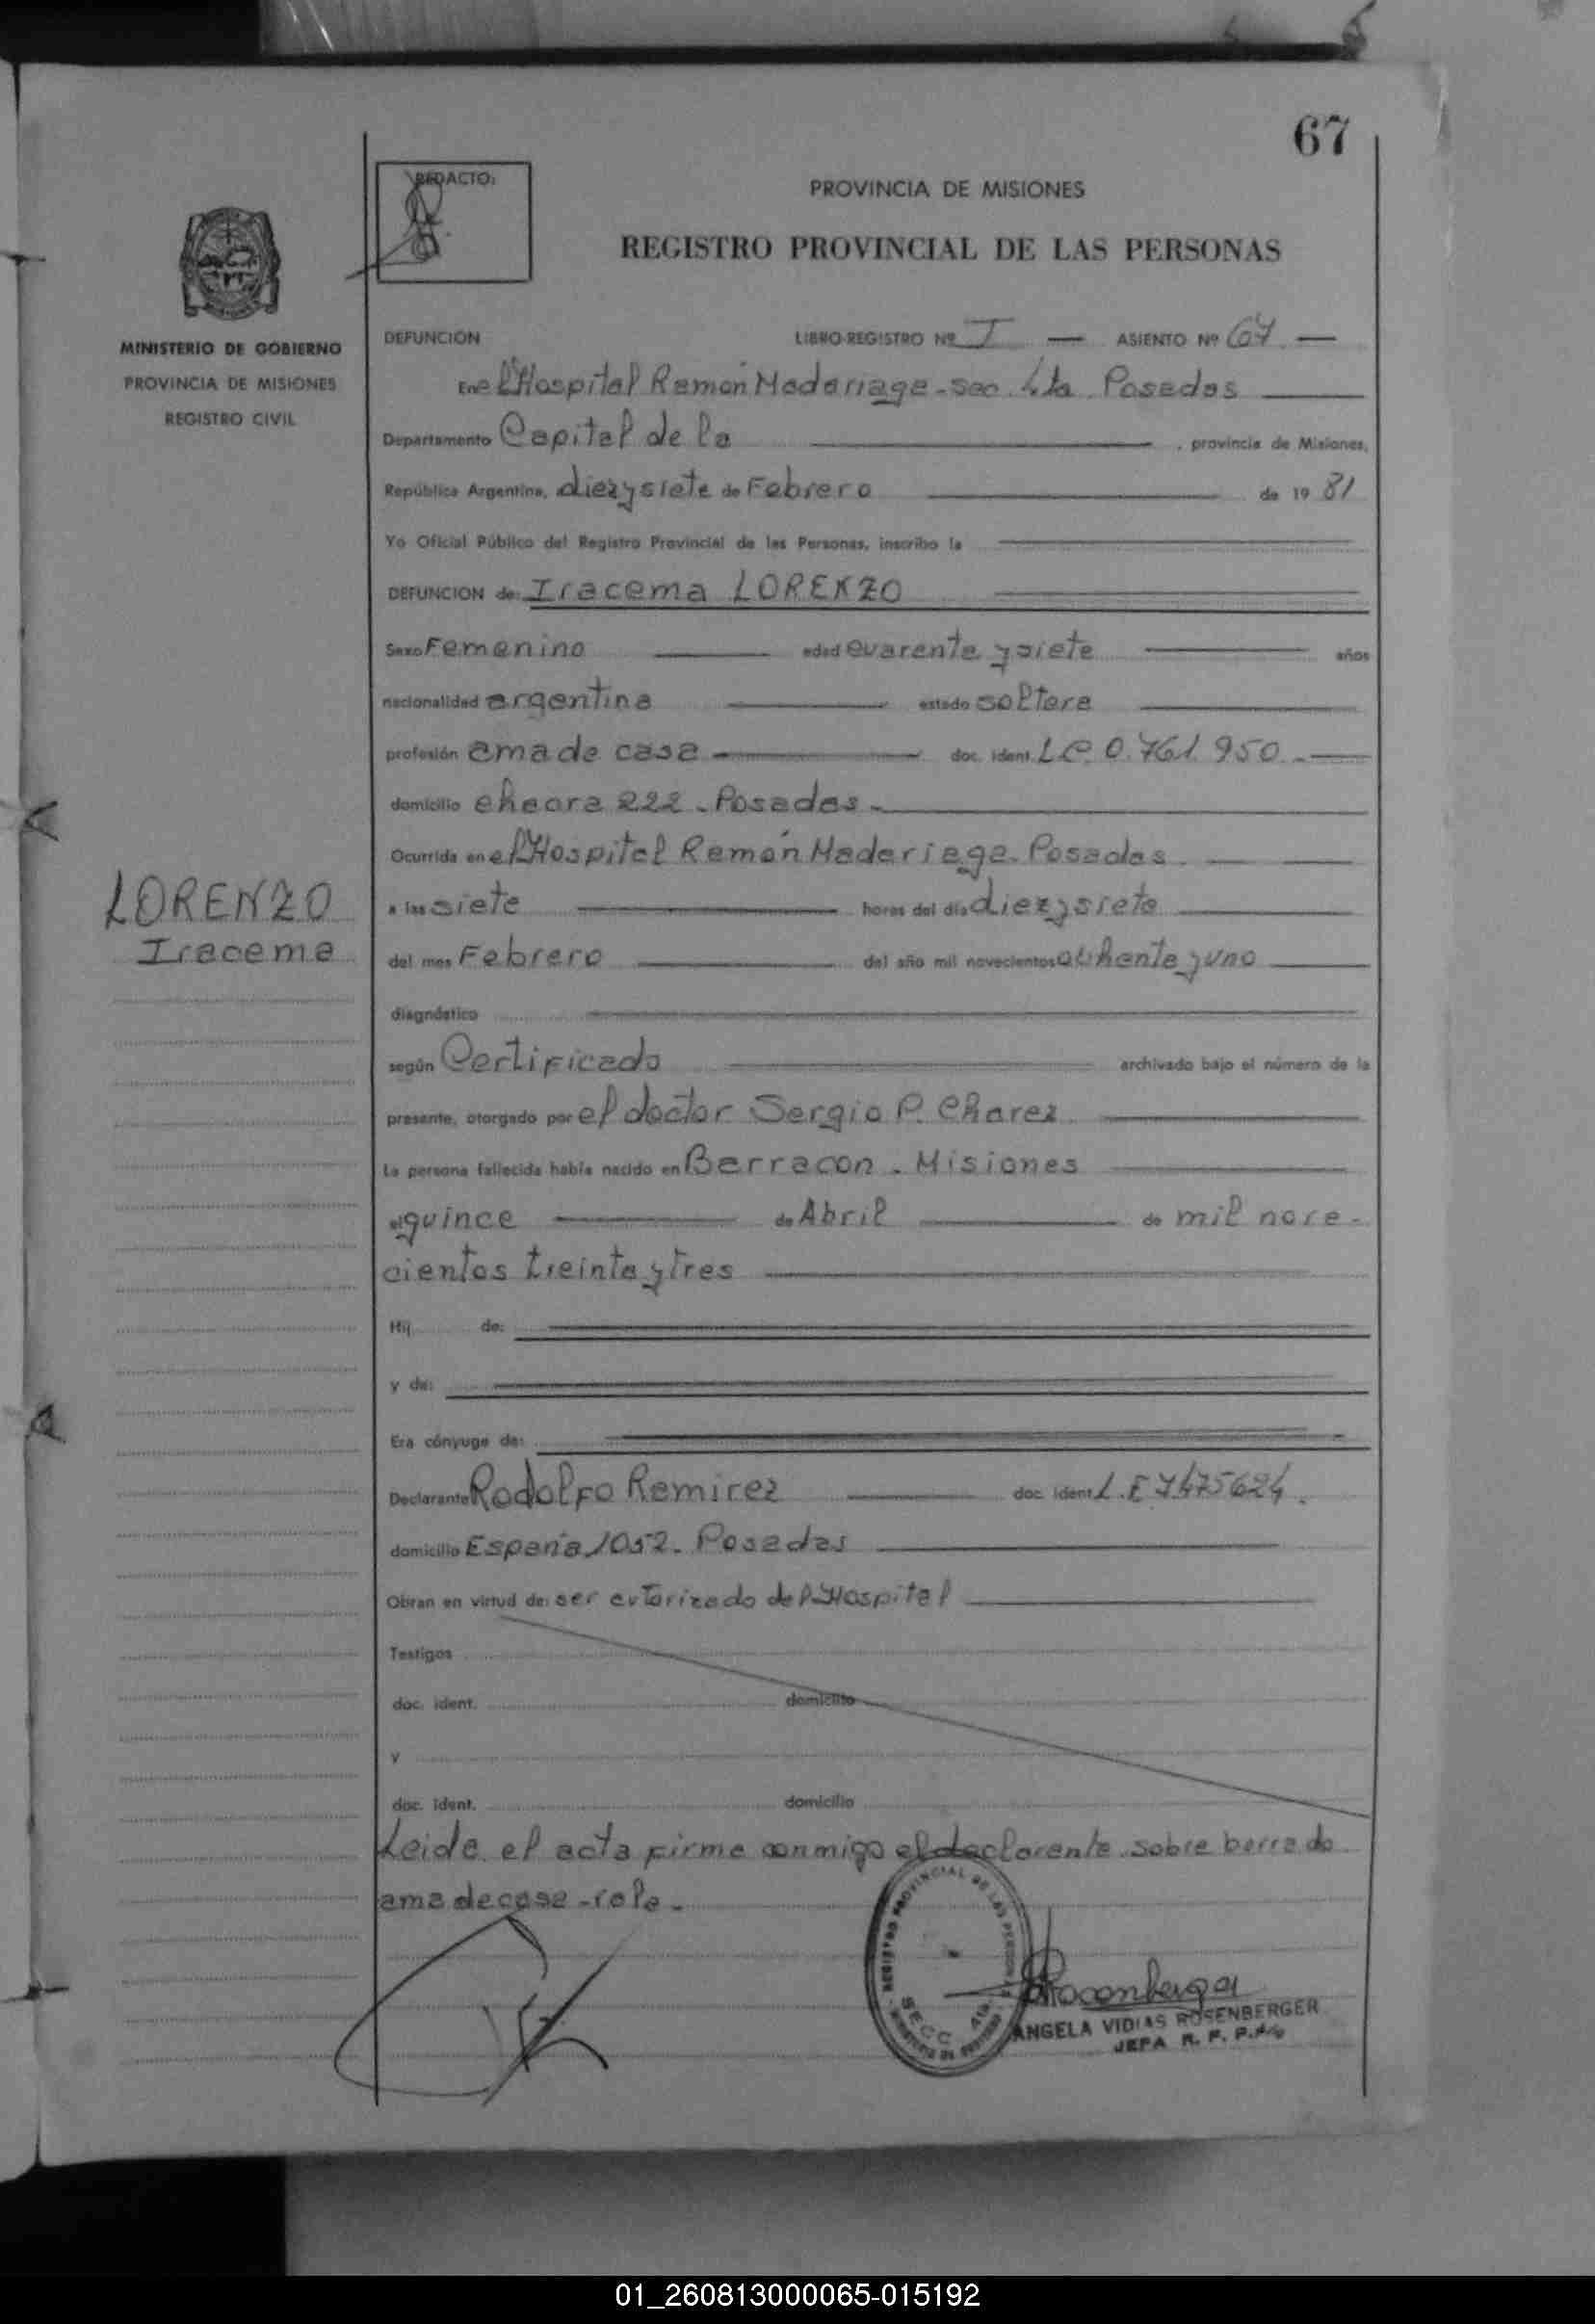 67
REDACTO:
PROVINCIA DE MISIONES
REGISTRO PROVINCIAL DE LAS PERSONAS
MINISTERIO DE GOBIERNO
PROVINCIA DE MISIONES
REGISTRO CIVIL
DEFUNCION LIBRO-REGISTRO Nº I — ASIENTO Nº 67 —
En el Hospital Ramón Madariaga - Sec. 4ta Posadas
Departamento Capital de la , provincia de Misiones,
República Argentina, diezysiete de Febrero de 19 81
Yo Oficial Público del Registro Provincial de las Personas, inscribo la
DEFUNCION de: Iracema LORENZO
Sexo Femenino edad cuarenta y siete años
nacionalidad argentina estado soltera
profesión ama de casa doc. ident. LC. 0.761.950.-
domicilio chacra 222 - Posadas -
Ocurrida en el Hospital Ramón Madariaga - Posadas
LORENZO
Iracema
a las siete horas del día diezysiete
del mes Febrero del año mil novecientos ochenta y uno
diagnóstico
según Certificado archivado bajo el número de la
presente, otorgado por el doctor Sergio P. Chavez
La persona fallecida había nacido en Barracon - Misiones
el quince de Abril de mil nove-
cientos treinta y tres
Hij de:
y de:
Era cónyuge de:
Declarante Rodolfo Ramirez doc. ident. L.E 7475624.
domicilio España 1052 - Posadas
Obran en virtud de: ser autorizado del Hospital
Testigos
doc. ident. domicilio
y
doc. ident. domicilio
Leida el acta firma conmigo el declarante. sobre borrado
ama de casa - vale -
REGISTRO PROVINCIAL DE LAS PERSONAS
SECC. 4ta
Rosenberger
ANGELA VIDIAS ROSENBERGER
JEFA R. P. P.
01_260813000065-015192